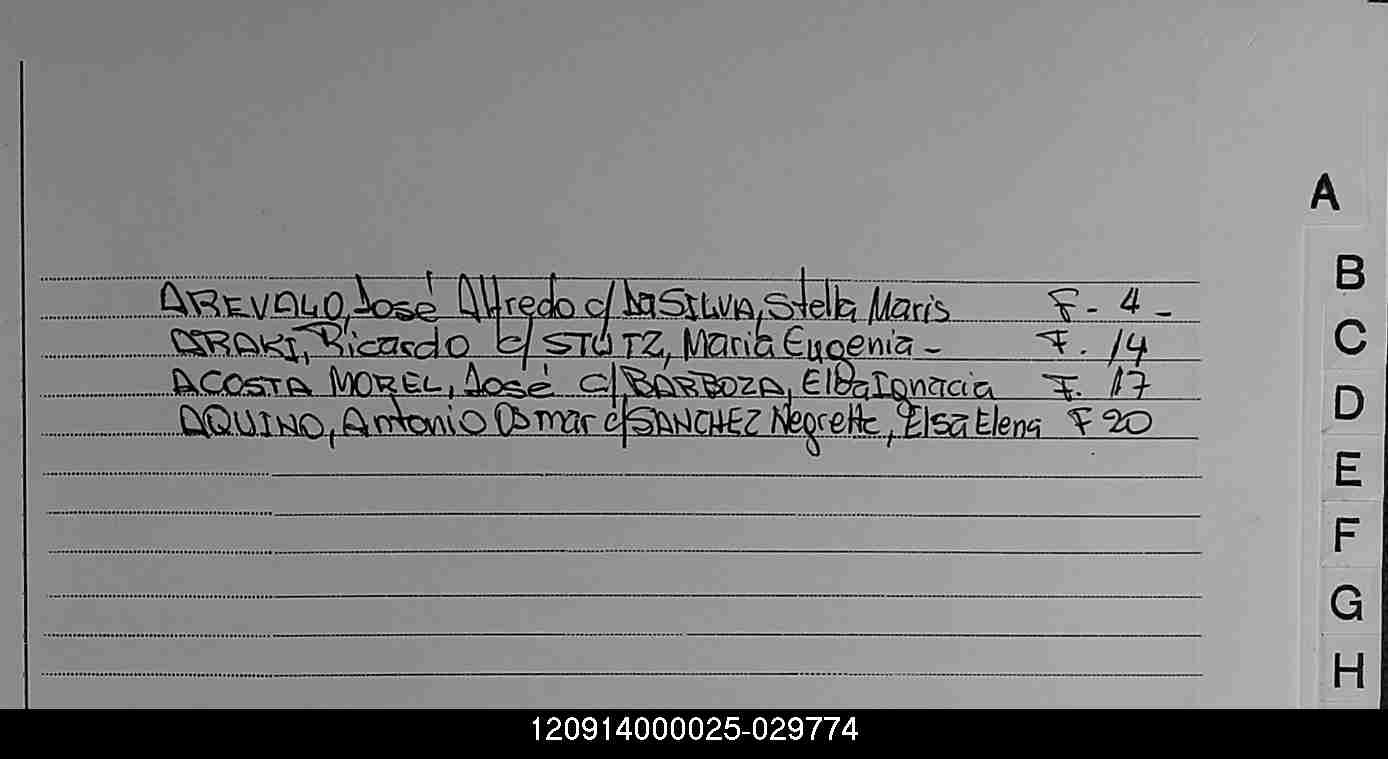 A
B
C
D
E
F
G
H
AREVALO, José Alfredo c/ DaSILVA, Stella Maris F- 4 -
ARAKI, Ricardo c/ STUTZ, Maria Eugenia - F. 14
ACOSTA MOREL, José c/ BARBOZA, Elba Ignacia F. 17
AQUINO, Antonio Osmar c/ SANCHEZ Negrette, Elsa Elena F 20
120914000025-029774